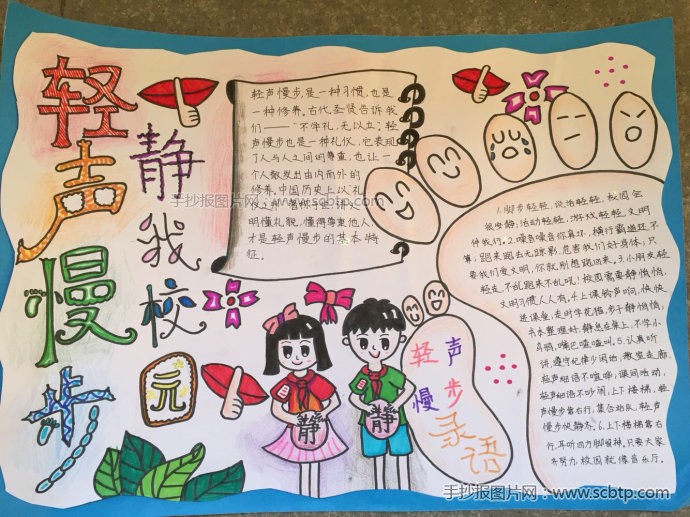 轻声慢步
静我校园
轻声慢步,是一种习惯,也是
一种修养。古代圣贤告诉我
们——“不学礼,无以立;轻
声慢步也是一种礼仪,它表现
了人与人之间的尊重,也让一
个人散发出由内而外的
修养。中国历史上以礼
明懂礼貌,懂得尊重他人
才是轻声慢步的基本特
征。
手抄报图片网:www.scbtp.com
1.脚步轻轻,说话轻轻,校园会
很安静;活动轻轻,游戏轻轻,文明
伴我行。2.噪音噪音你真坏,横行霸道还不
算;跑来跑去无踪影,危害我们好身体,只
要我们变文明,你就别想跑回来。3.小朋友轻
轻走,不乱跑来不乱吼;校园需要静悄悄,
文明习惯人人夸。4.上课铃声响,快快
进课堂,走时华花猫,步子静悄悄;
书本整理好,静息在桌上,不学小
乌鸦,嘴巴喳喳叫。5.认真听
讲,遵守纪律少闲地,教室走廊,
轻声细语不喧哗;课间活动,
轻声细语不吵闹,上下楼梯,轻
声慢步靠右行,集合站队,轻声
慢步快静齐。6.上下楼梯靠右
行,耳听四方脚留神。只要大家
齐努力,校园就像音乐厅。
静
静
轻声
慢步
录语
手抄报图片网:www.scbtp.com